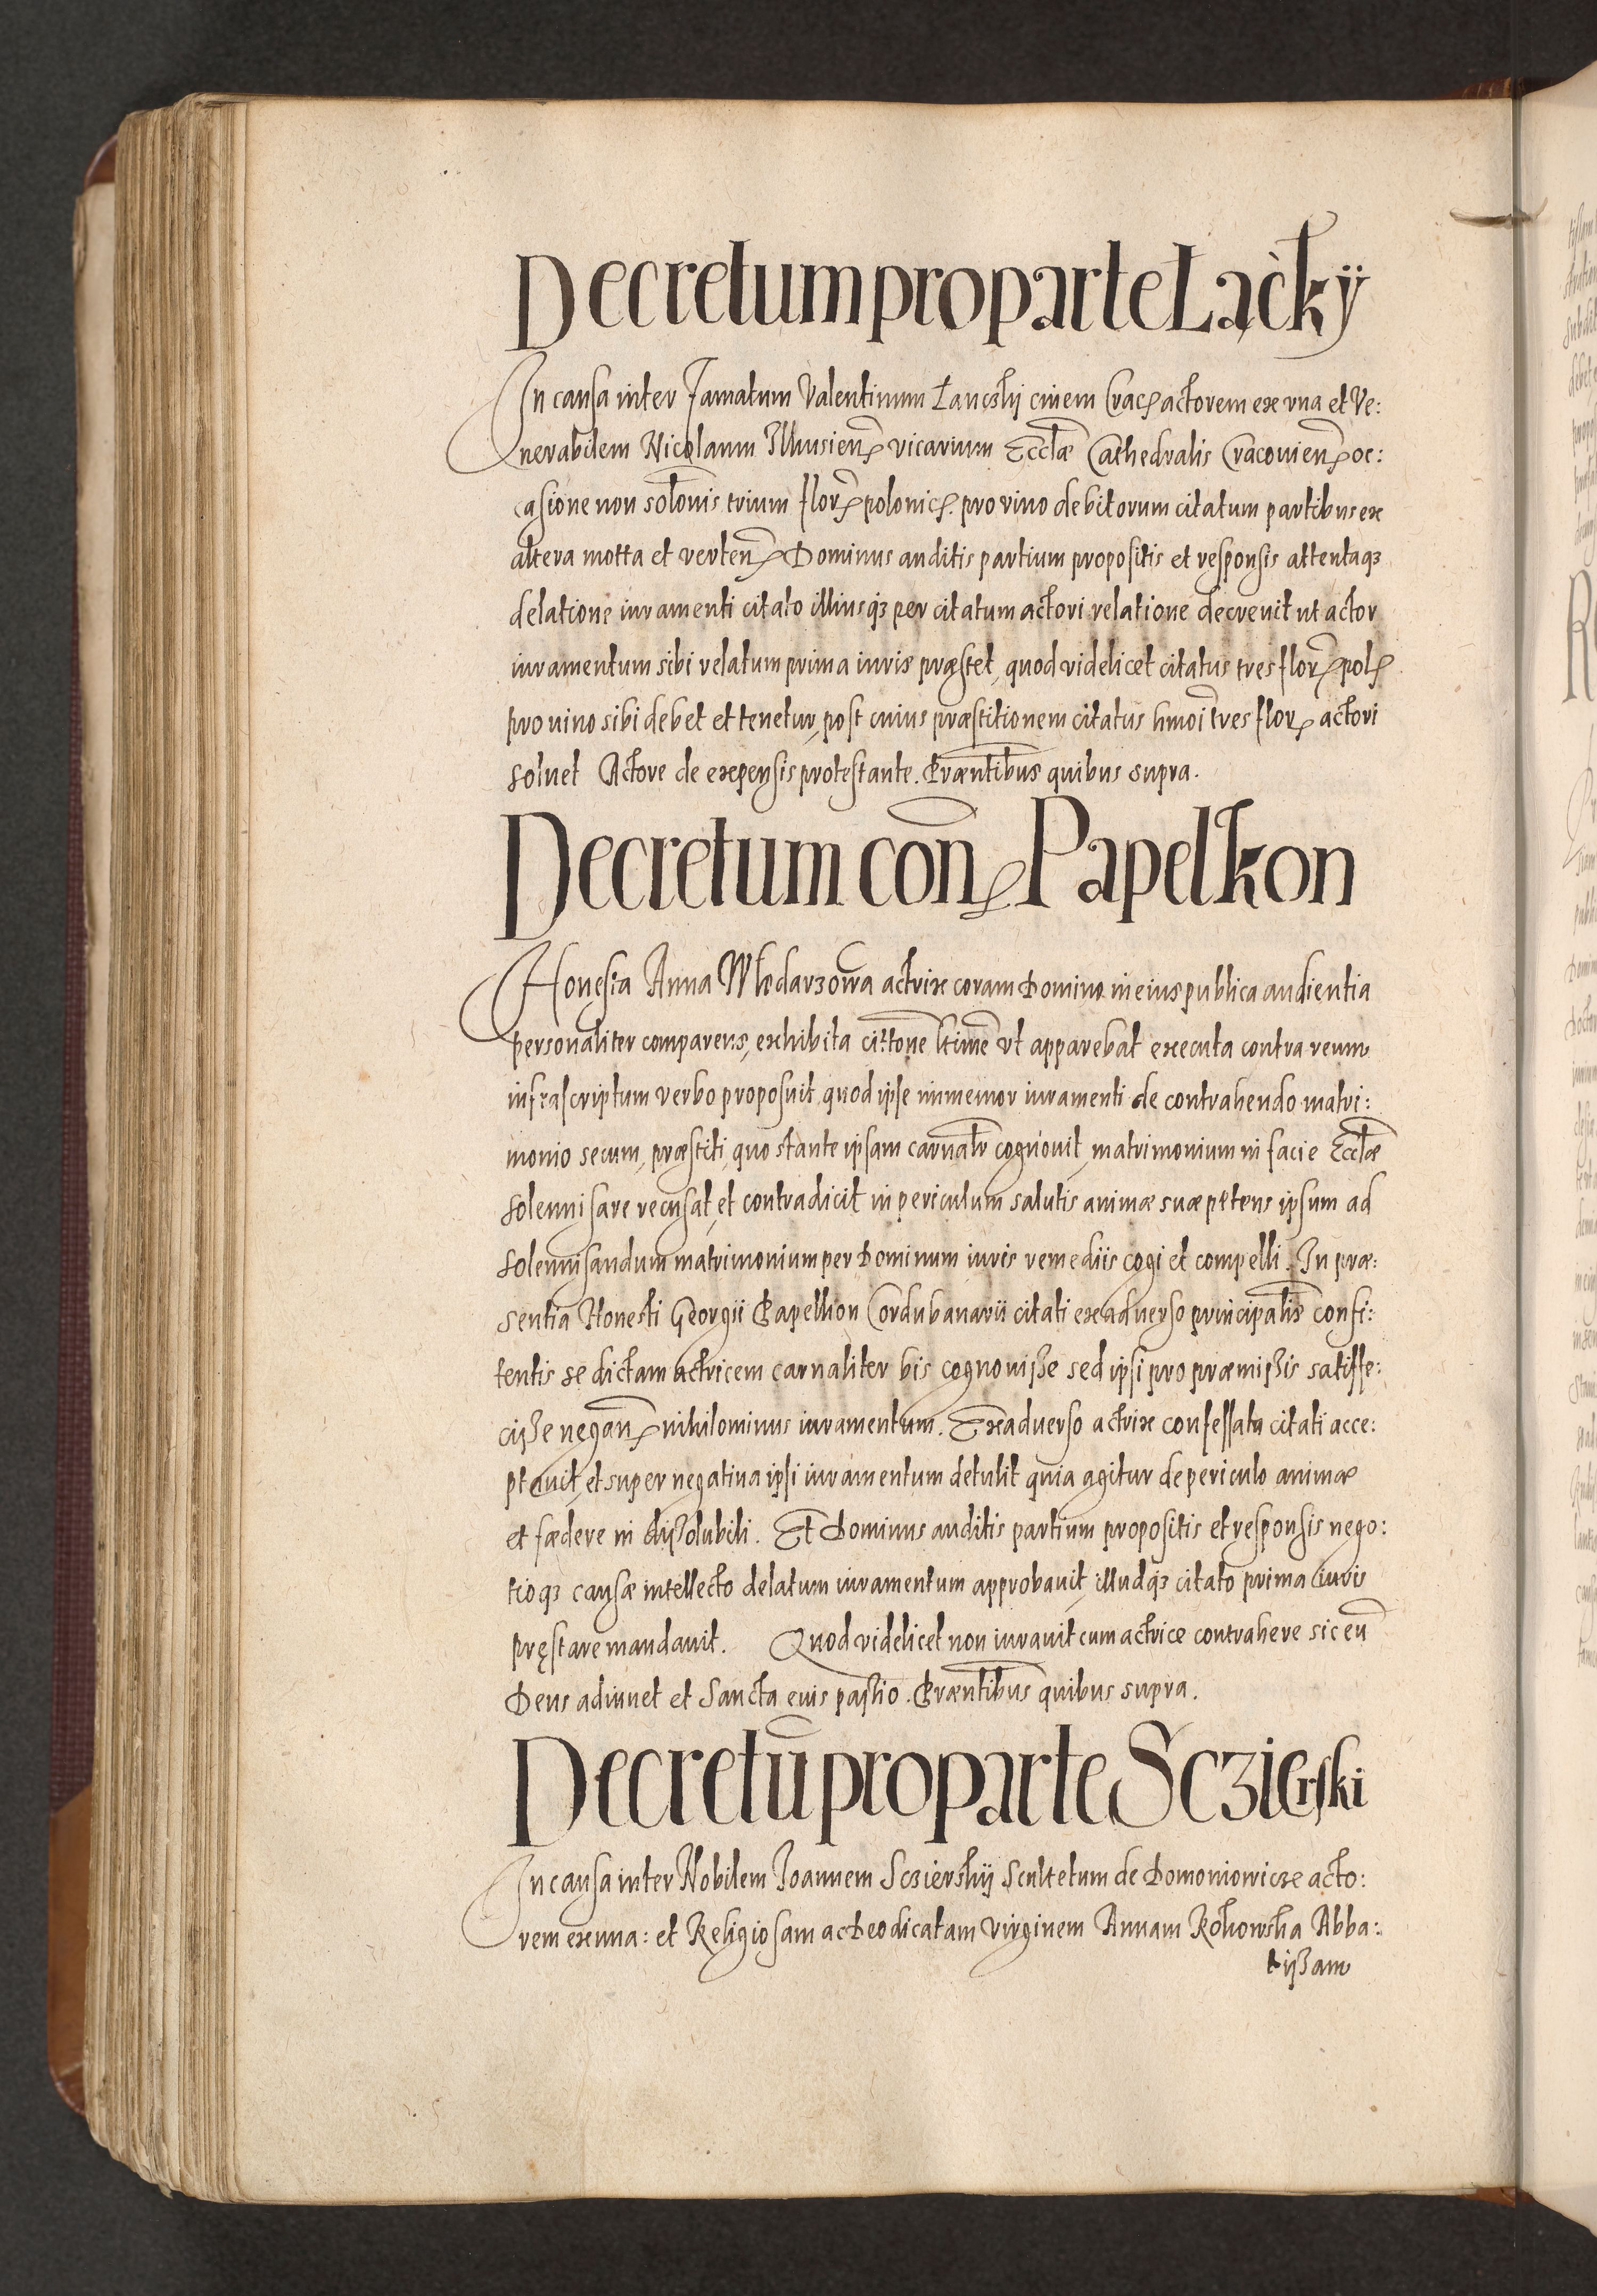 Decretum pro parte Łaćkÿ
In causa inter Famatum Valentinum Łanczkij ciuem Crac. actorem ex vna et Ve:
nerabilem Nicolaum Illkusien̄. vicarium Eccl̄æ Cathedralis Cracouien̄. oc:
casione non sol̄onis trium flor̄. polonic. pro vino debitorum citatum partibus ex
altera motta et verten̄. Dominus auditis partium propositis et responsis attentaq3
delatione iuramenti citato illiusq3 per citatum actori relatione decreuit ut actor
iuramentum sibi relatum prima iuris præstet, quod videlicet citatus tres flor̄. pol.
pro uino sibi debet et tenetur, post cuius præstitionem citatus hmōi tres flor. actori
soluet Actore de expensis protestante. Præntībus quibus supra.
Decretum con̄. Papelkon
Honesta Anna Włodarzowa actrix coram Domino in eius publica audientia
personaliter comparens, exhibita cittōne ltimē vt apparebat executa contra reum
infrascriptum verbo proposuit quod ipse immemor iuramenti de contrahendo matri:
monio secum, præstiti, quo stante ipsam carnalr̄ cognouit, matrimonium in facie Eccl̄æ
solennisare recusat, et contradicit in periculum salutis animæ suæ petens ipsum ad
solennisandum matrimonium per Dominum iuris remediis cogi et compelli. In præ:
sentia Honesti Georgii Papelkon Cordubanarii citati ex aduerso principalis̄ confi:
tentis se dictam actricem carnaliter bis cognouiße sed ipsi pro præmißis satisfe:
ciße negan̄. nihilominus iuramentum. Ex aduerso actrix confessata citati acce:
ptauit, et super negatiua ipsi iuramentum detulit quia agitur de periculo animæ
et fædere in dißolubili. Et Dominus auditis partium propositis et responsis nego:
tioq3 causæ intellecto delatum iuramentum approbauit, illudq3 citato prima iuris
pręstare mandauit. Quod videlicet non iurauit cum actrice contrahere sic eū
Deus adiuuet et Sancta eius paßio. Præntībus quibus supra.
Decretū pro parte Sczierski
In causa inter Nobilem Joannem Sczierskij Scultetum de Domoniowicze acto:
rem ex una: et Religiosam ac Deo dicatam virginem Annam Kothowska Abba:
tißam